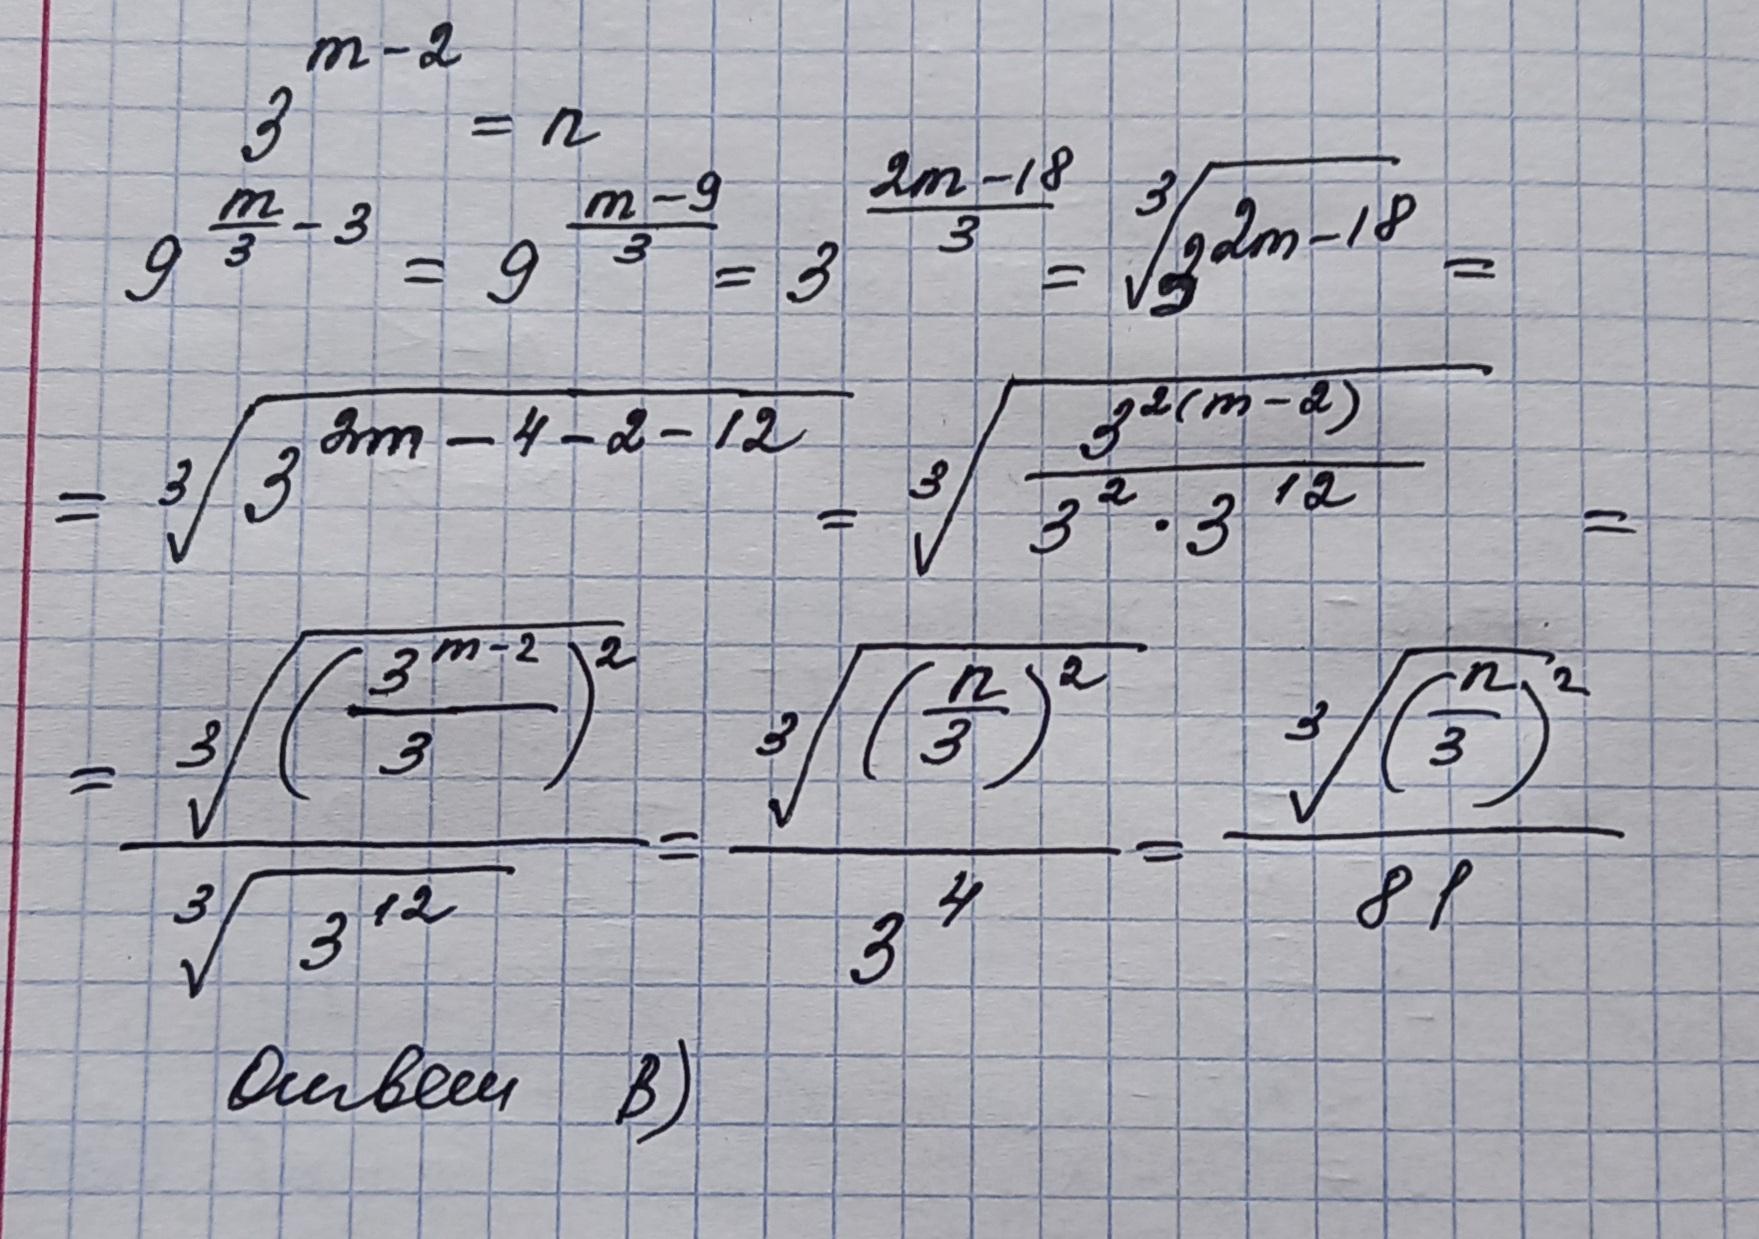 3^(m-2) = n
9^(m/3 - 3) = 9^((m-9)/3) = 3^((2m-18)/3) = ∛(3^(2m-18)) =
= ∛(3^(2m-4-2-12)) = ∛(3^(2(m-2)) / (3^2 · 3^12)) =
= ∛((3^(m-2) / 3)^2) / ∛(3^12) = ∛((n/3)^2) / 3^4 = ∛((n/3)^2) / 81
Ответ В)